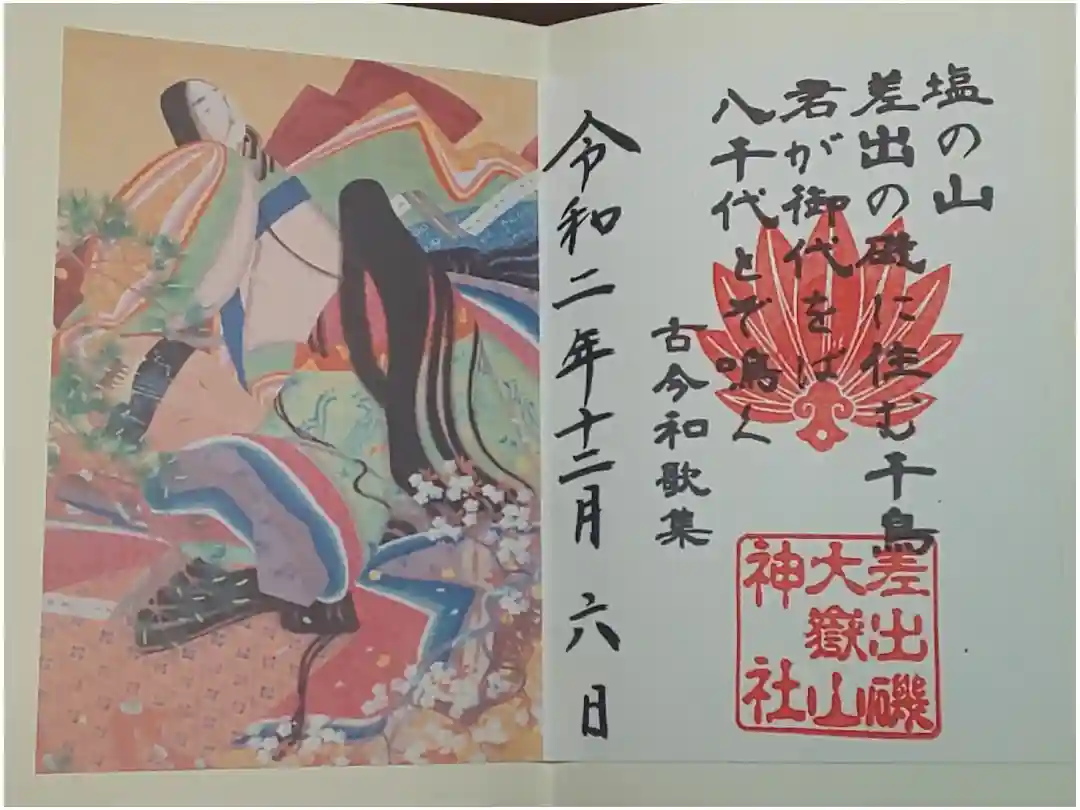 塩の山
差出の磯に住む千鳥
君が御代をば
八千代とぞ鳴く
古今和歌集
令和二年十二月 六日
差出磯
大嶽山
神社